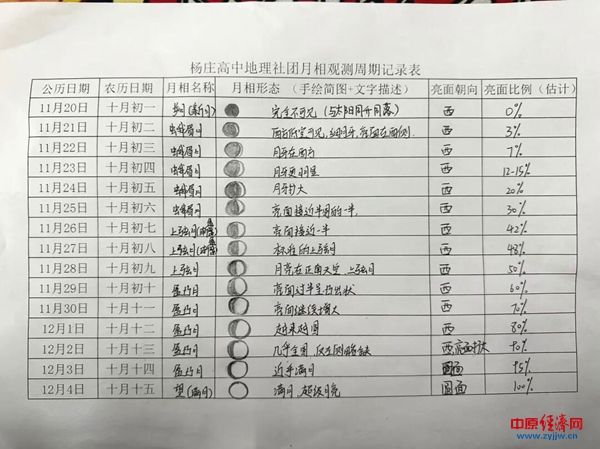 杨庄高中地理社团月相观测周期记录表
公历日期 农历日期 月相名称 月相形态 (手绘简图+文字描述) 亮面朝向 亮面比例(估计)
11月20日 十月初一 朔(新月) 完全不可见 (与太阳同升同落) 西 0%
11月21日 十月初二 蛾眉月 西 3%
11月22日 十月初三 蛾眉月 月牙在西方 西 7%
11月23日 十月初四 蛾眉月 月牙更明显 西 12-15%
11月24日 十月初五 蛾眉月 月牙扩大 西 20%
11月25日 十月初六 蛾眉月 亮面接近半圆的一半 西 30%
11月26日 十月初七 上弦月 亮面接近一半 西 42%
11月27日 十月初八 上弦月 标准的上弦月 西 48%
11月28日 十月初九 上弦月 月亮在正南天空 上弦月 西 50%
11月29日 十月初十 盈凸月 亮面过半呈凸出状 西 60%
11月30日 十月十一 盈凸月 亮面继续增大 西 70%
12月1日 十月十二 盈凸月 越来越圆 西 80%
12月2日 十月十三 盈凸月 几乎全圆 仅左侧略缺 西 90%
12月3日 十月十四 盈凸月 近乎满月 圆面 95%
12月4日 十月十五 望(满月) 满月 超级月亮 圆面 100%
中原经济网
www.zyjjw.cn